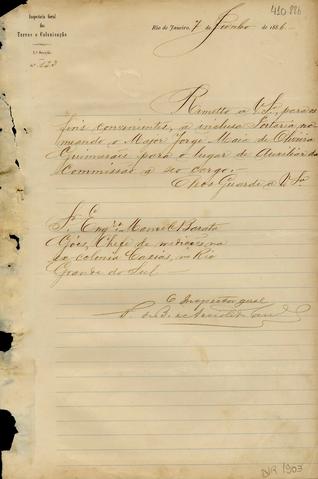 410.886
Inspectoria Geral
das
Terras e Colonização
Rio de Janeiro, 7 de Junho de 1886.
1ª Secção
Nº 123
Remetto a V. Sª, para os
fins convenientes, a inclusa Portaria no-
meando o Major Jorge Maia de Oliveira
Guimarães para o lugar de Auxiliar da
Commissão a seo cargo.
Deos Guarde a V. Sª
Sr. Engº Manoel Barata
Góes, Chefe de medições na
ex colonia Caxias, no Rio
Grande do Sul
O Inspector geral
1903